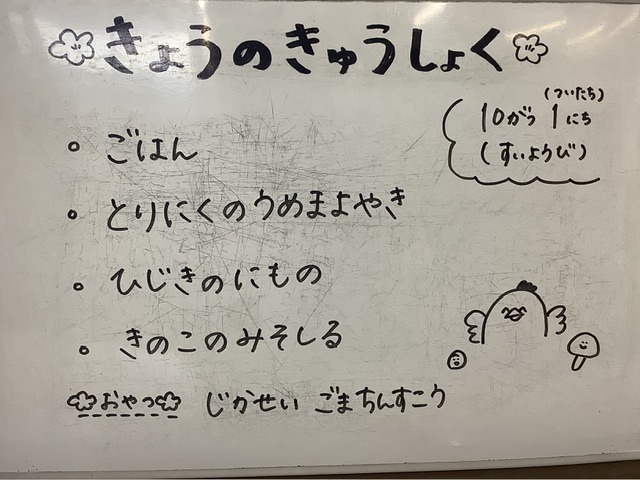 きょうのきゅうしょく
(ついたち)
10がつ 1にち
(すいようび)
。ごはん
。とりにくのうめまよやき
。ひじきのにもの
。きのこのみそしる
おやつ じかせい ごまちんすこう